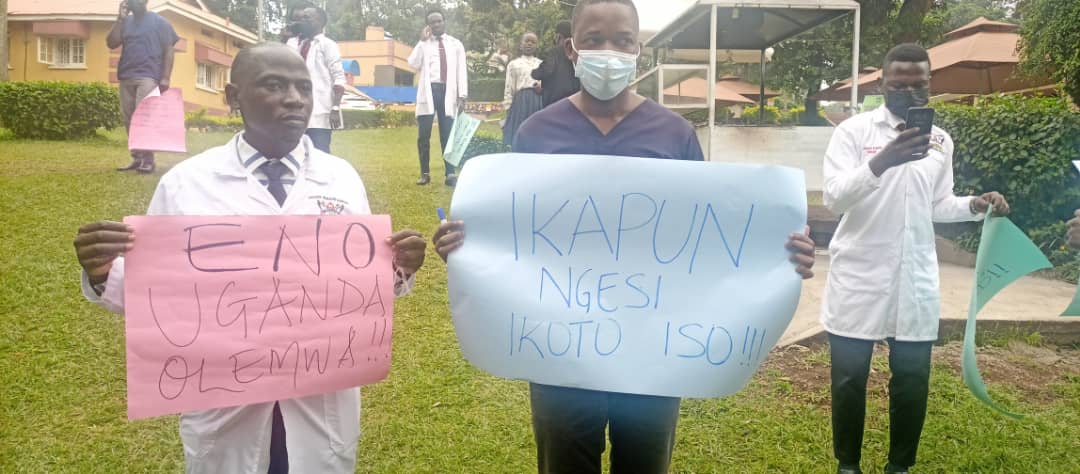 ENO
UGANDA
OLEMWA!!!
IKAPUN
NGESI
IKOTO ISO!!!